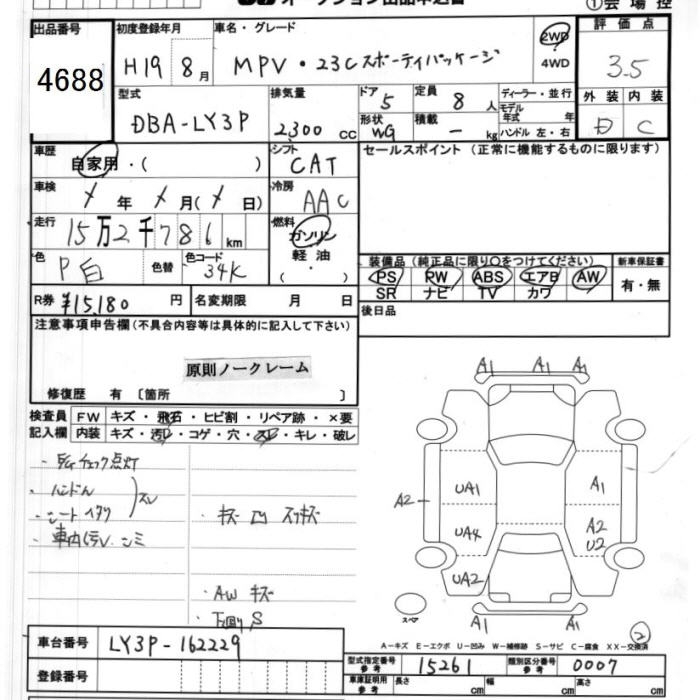 ①会場控
出品番号
4688
初度登録年月
H19 8月
車名・グレード
MPV・23Cスポーティパッケージ
2WD
4WD
評価点
3.5
外装 内装
D C
型式
DBA-LY3P
排気量
2,300 cc
ドア 5
形状 WG
定員 8 人
積載 - kg
ディーラー・並行
モデル
年式 年
ハンドル 左・右
車歴
自家用・( )
シフト
CAT
セールスポイント (正常に機能するものに限ります)
車検
年 月( 日)
冷房
AAC
走行
15万2千786km
燃料
ガソリン
軽油
( ・ )
色
P白
色替
色コード
34K
装備品 (純正品に限り○をつけてください)
PS PW ABS エアB AW
SR ナビ TV カワ
新車保証書
有・無
R券 ¥15,180 円
名変期限 月 日
後日品
注意事項申告欄 (不具合内容等は具体的に記入して下さい)
原則ノークレーム
修復歴 有 〔箇所 〕
検査員
記入欄
FW キズ・飛石・ヒビ割・リペア跡・×要
内装 キズ・汚レ・コゲ・穴・スレ・キレ・破レ
・ チェック点灯
・ハンドル スレ
・シートヘタリ
・車内 シミ
・キズ 凹 スリキズ
・AW キズ
・下廻りS
A1 A1 A1
UA1 A1
A2
UA4 A2
U2
UA2
A1 A1
スペア
②
A-キズ E-エクボ U-凹み W-補修跡 S-サビ C-腐食 XX-交換済
車台番号 LY3P-162229
登録番号
型式指定番号
参考
15261
類別区分番号
参考
0007
車庫証明用
参考
長さ cm 幅 cm 高さ cm